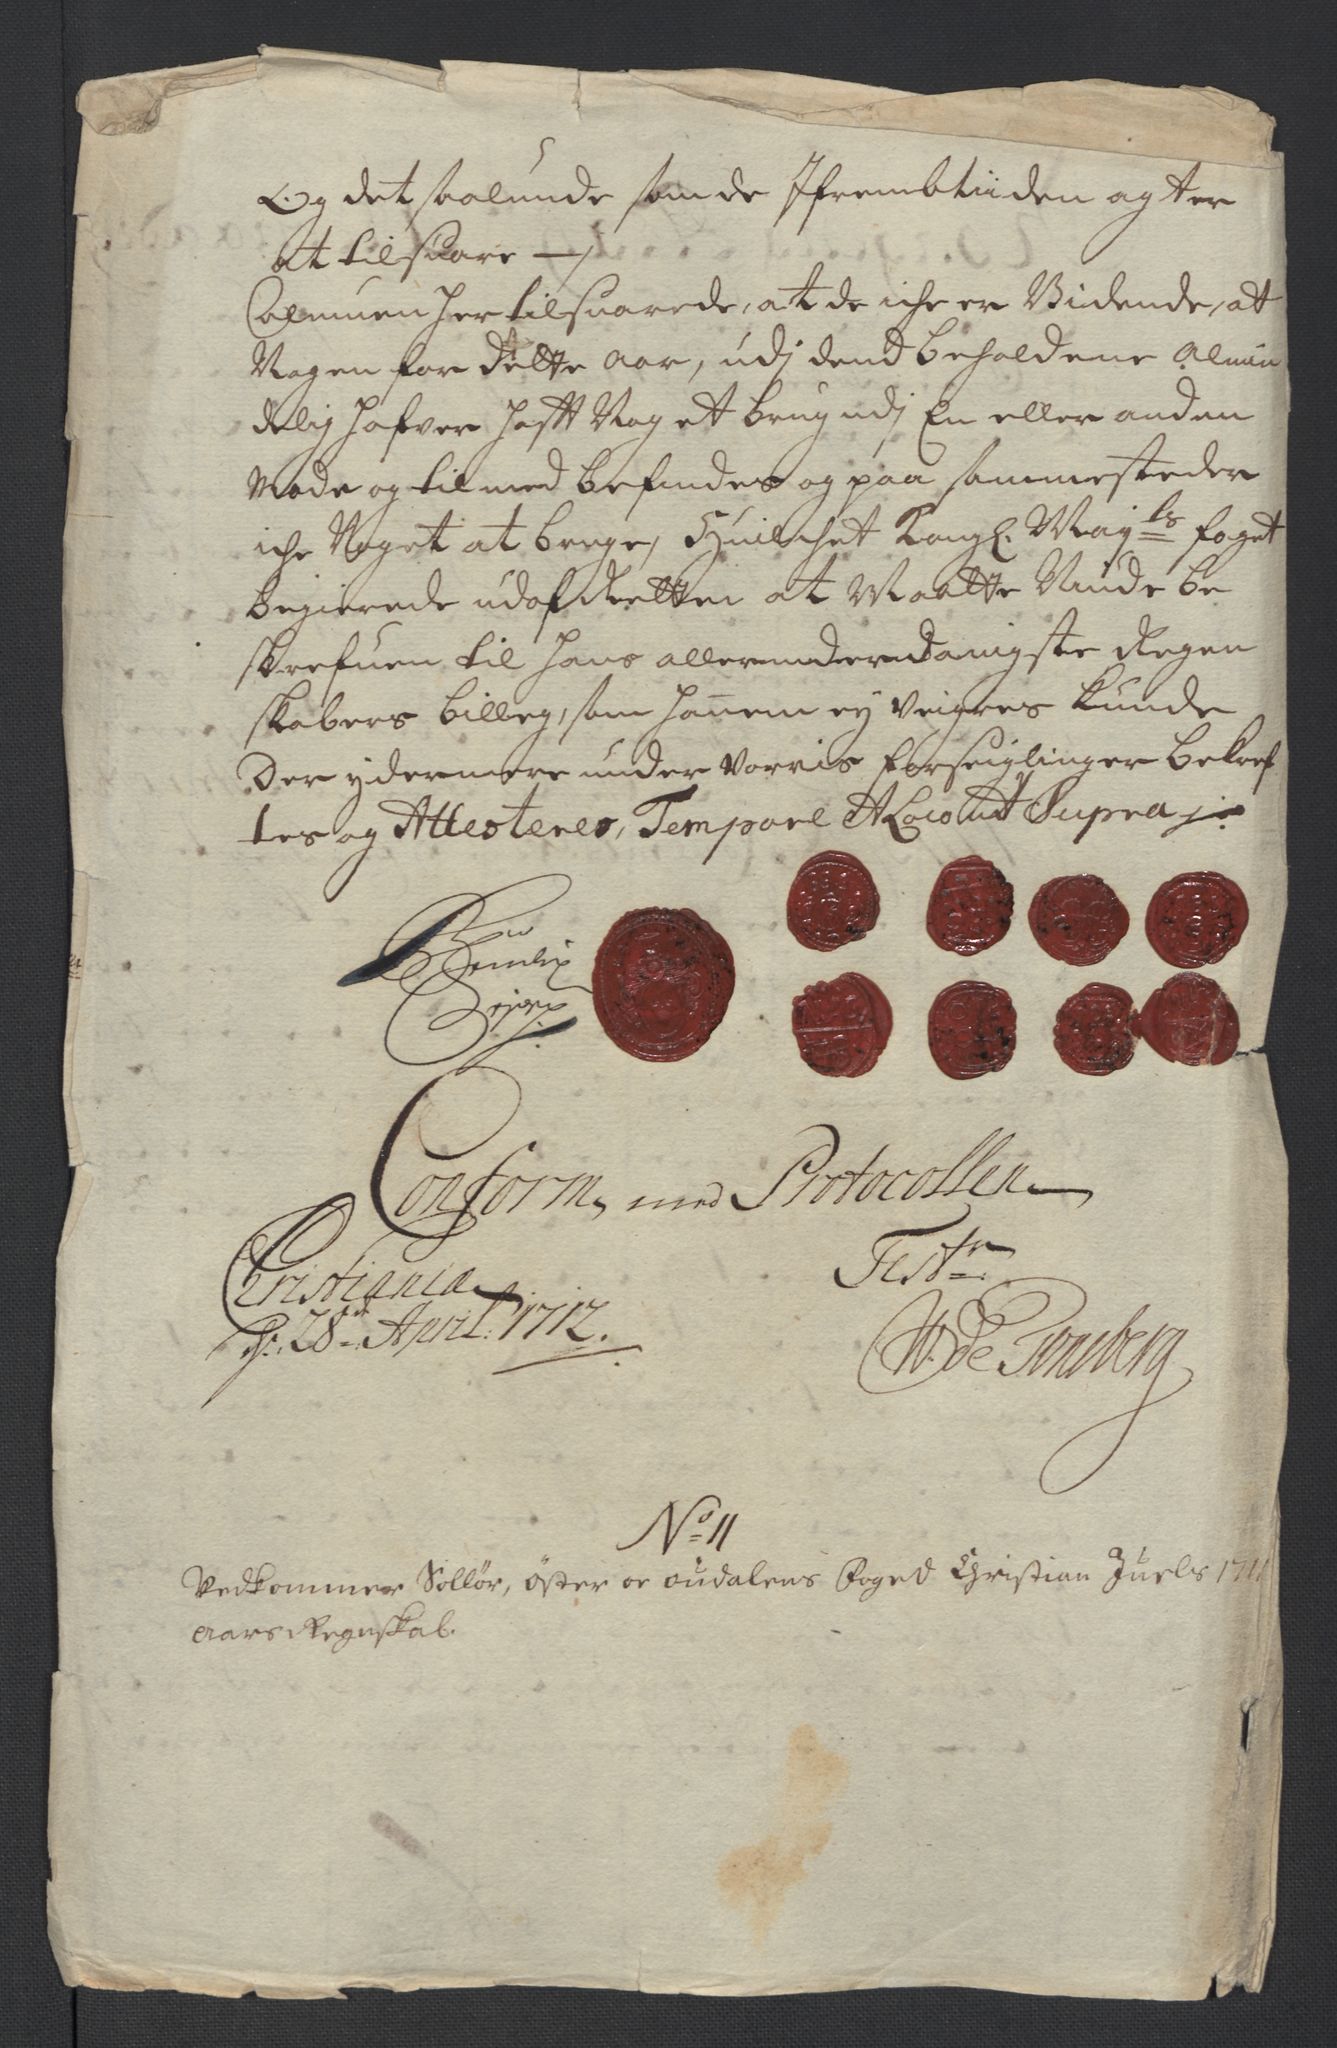 Og det saalunde som de Jfrembtiiden agter
at tilsuare —
Almuen her tilsuarede, at de iche er Vidende, at
Nogen for dette aar, udj dend beholdene Almin
delig hafver hafft Noget brug udj En eller anden
Made og til med befindes og paa sammesteder
iche Noget at bruge, Huilchet Kongl. May:ts foget
begierede udaf Retten at Maatte Niude be
skrefuen til hans allerunderdanigste Regen
skabers billeg, som hannem ey veigres kunde
Der ydermere under vorris forseiglinger bekref
tes og Attesteres, Tempore & Loco ut Supra
Conform med Protocollen
Test:
Christiania
d. 28 April: 1712.
W. de Tonsberg
No 11
Vedkommer Sollør, Øster oc oudalens foged Christian Juels 1711
aars Regnskab.